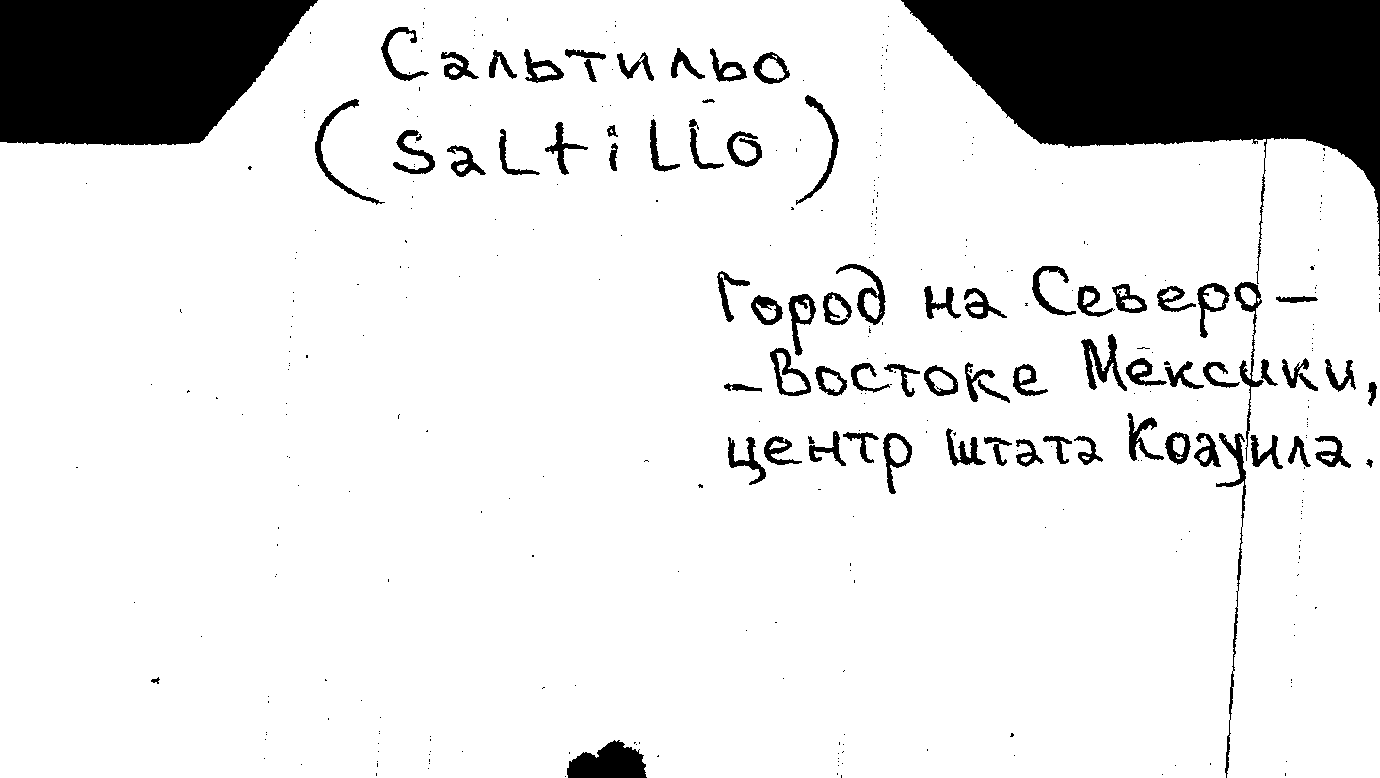 Сальтильо
(Saltillo)
Город на Северо-
-Востоке Мексики,
центр штата Коауила.